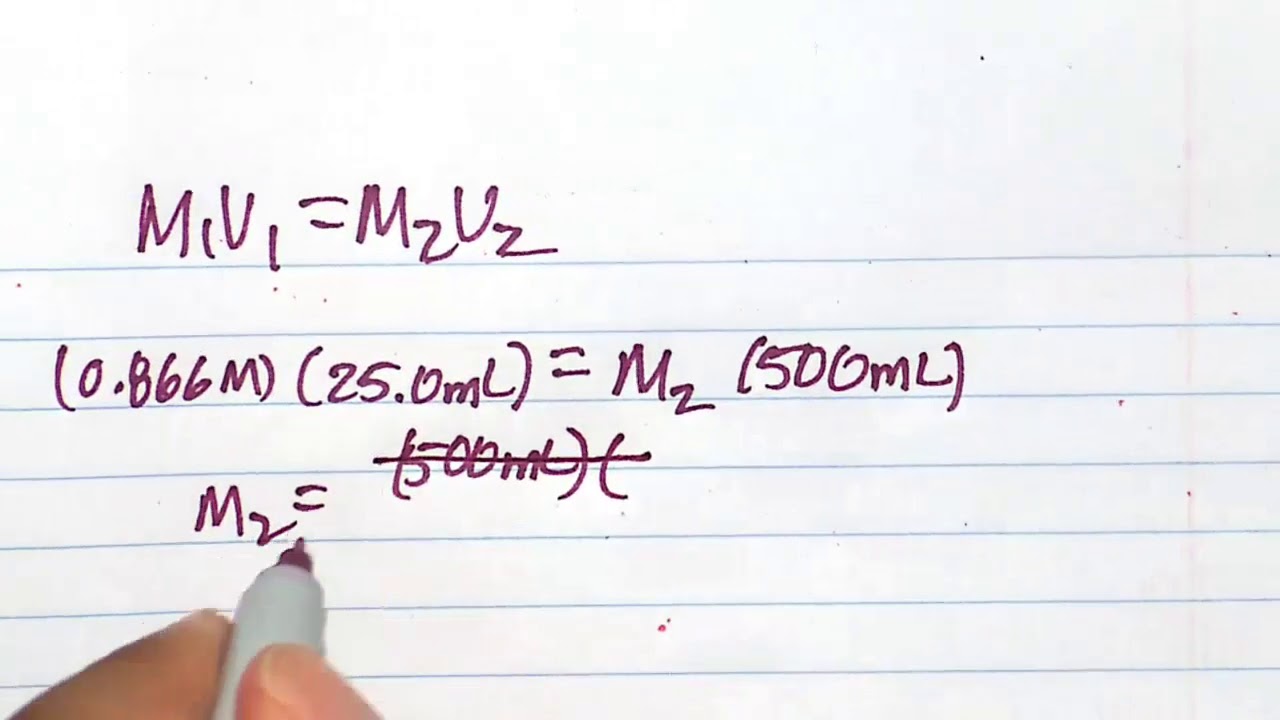 M₁V₁ = M₂V₂
(0.866M) (25.0mL) = M₂ (500mL)
(500mL)(
M₂ =